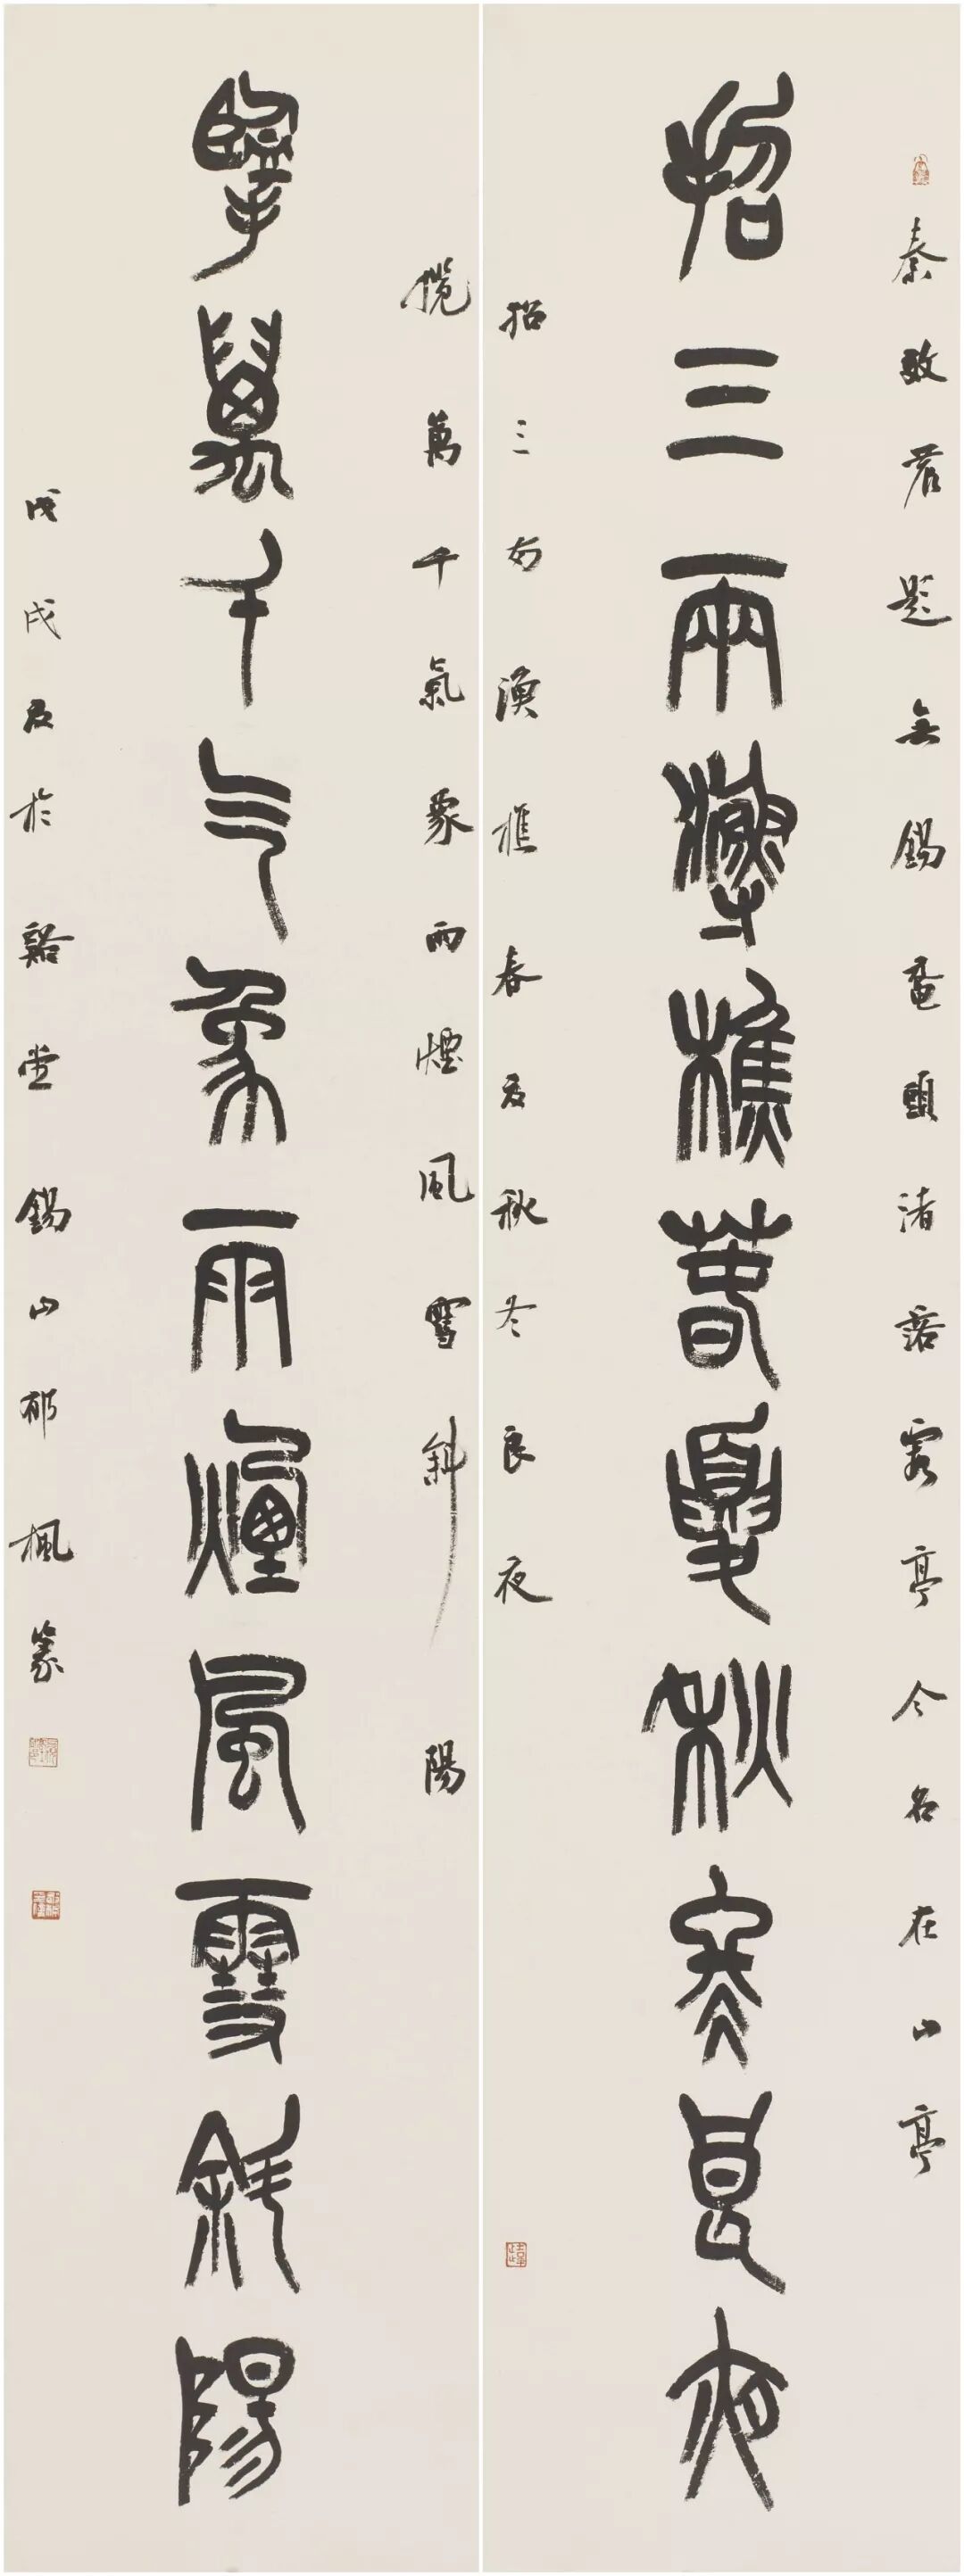 秦敦君題無錫黿頭渚亭今名在山亭
招三兩漁樵春夏秋冬良夜
招三兩漁樵春夏秋冬良夜
攬萬千氣象雨煙風雪斜陽
擥萬千气象雨煙風雪斜陽
戊戌夏於谿堂錫山郁楓篆